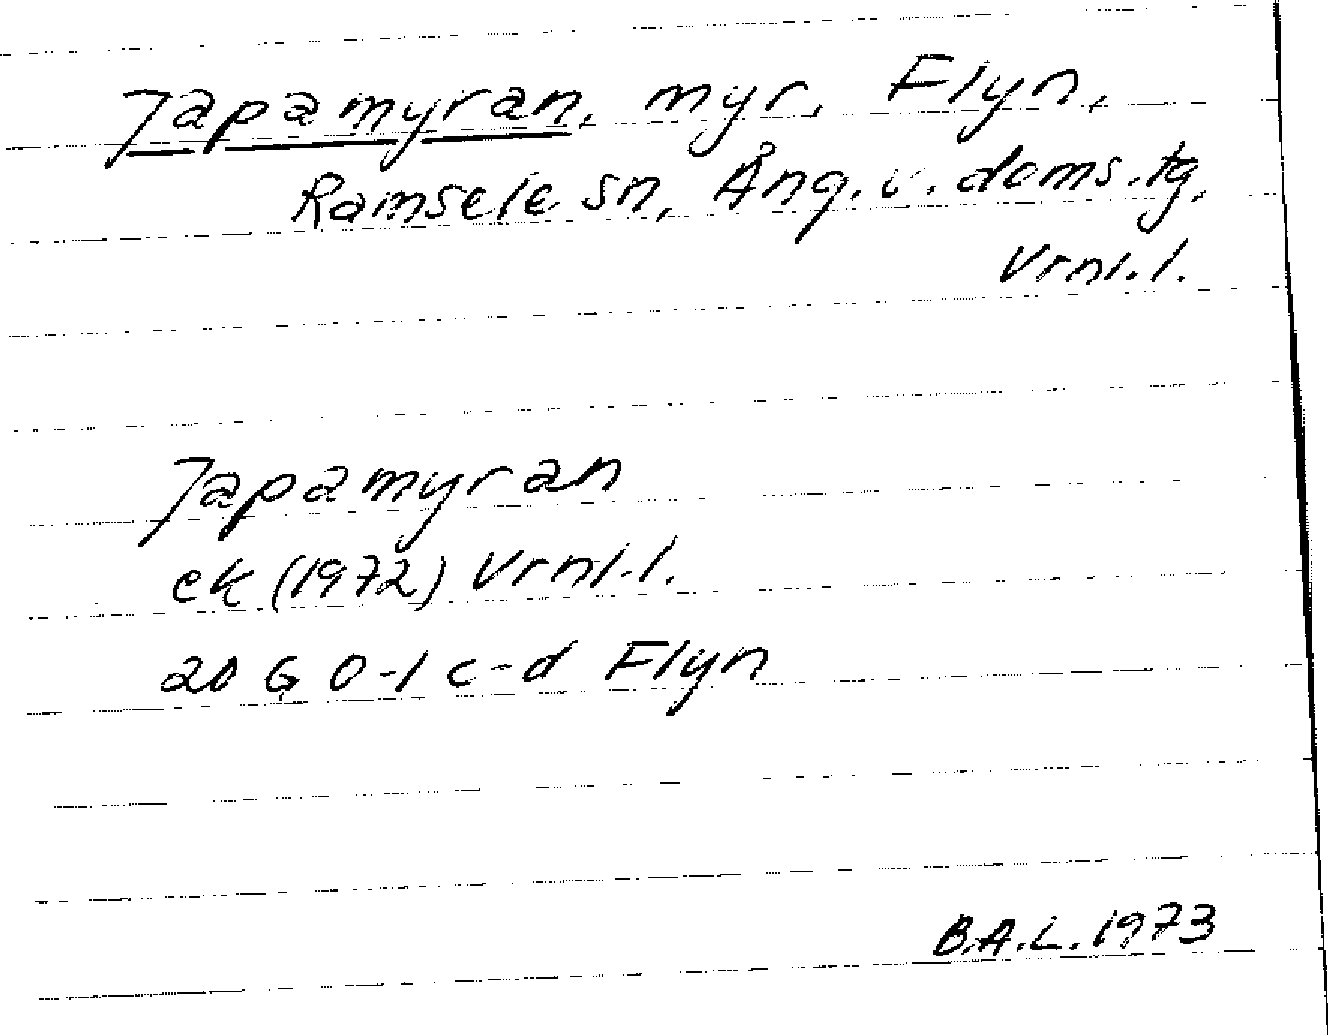 Japamyran, myr, Flyn,
Ramsele sn, Ång. v. doms. tg,
Vrnl. l.
Japamyran
ek (1972) Vrnl. l.
20 G 0-1 c-d Flyn
B.A.L. 1973